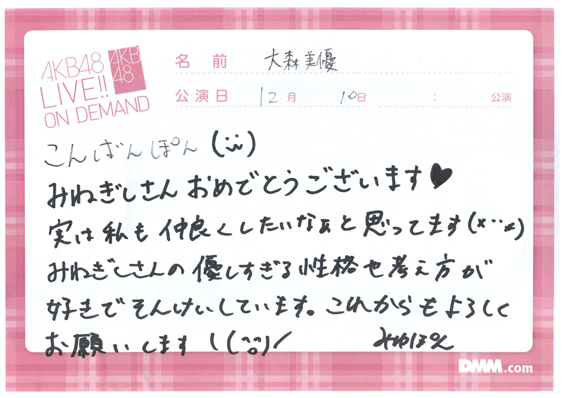 AKB48
LIVE!!
ON DEMAND
AKB
48
名前 大森美優
公演日 12月 10日 : 公演
こんばんぽん(¨)
みねぎしさん おめでとうございます♥
実は私も仲良くしたいなぁと思ってます(×··×)
みねぎしさんの優しすぎる性格や考え方が
好きでそんけいしています。これからもよろしく
お願いします!(^o^)/
みゆぽん
DMM.com